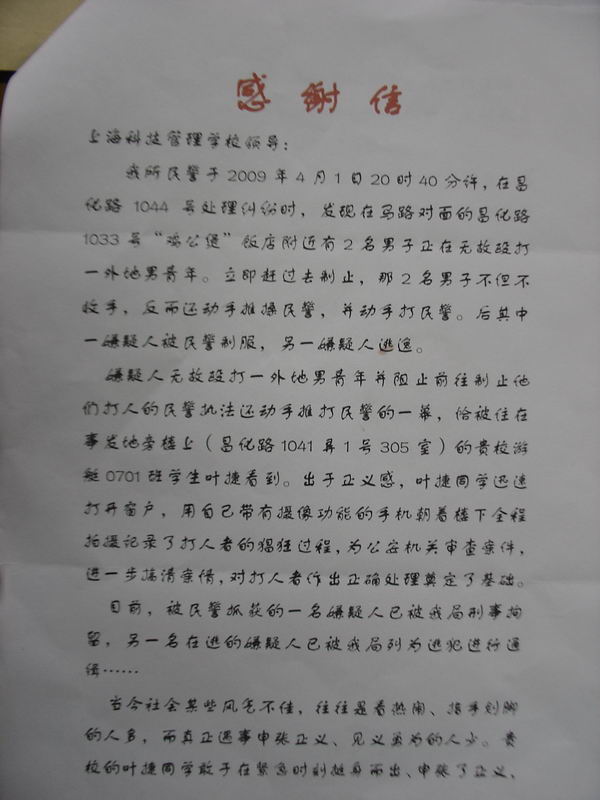 感谢信
上海科技管理学校领导：
我所民警于 2009 年 4 月 1 日 20 时 40 分许，在昌
化路 1044 号处理纠纷时，发现在马路对面的昌化路
1033 号“鸡公煲”饭店附近有 2 名男子正在无故殴打
一外地男青年。立即赶过去制止，那 2 名男子不但不
收手，反而还动手推搡民警，并动手打民警。后其中
一嫌疑人被民警制服，另一嫌疑人逃逸。
嫌疑人无故殴打一外地男青年并阻止前往制止他
们打人的民警执法还动手推打民警的一幕，恰被住在
事发地旁楼上（昌化路 1041 弄 1 号 305 室）的贵校游
艇 0701 班学生叶捷看到。出于正义感，叶捷同学迅速
打开窗户，用自己带有摄像功能的手机朝着楼下全程
拍摄记录了打人者的猖狂过程，为公安机关审查案件，
进一步搞清案情，对打人者作出正确处理奠定了基础。
目前，被民警抓获的一名嫌疑人已被我局刑事拘
留，另一名在逃的嫌疑人已被我局列为逃犯进行通
缉……
当今社会某些风气不佳，往往是看热闹、指手划脚
的人多，而真正遇事申张正义、见义勇为的人少。贵
校的叶捷同学敢于在紧急时刻挺身而出、申张了正义、